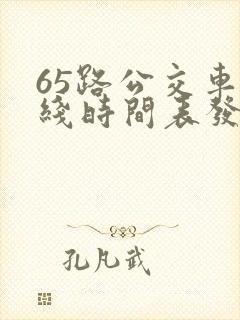 65路公交車
綫時間表發
孔凡武